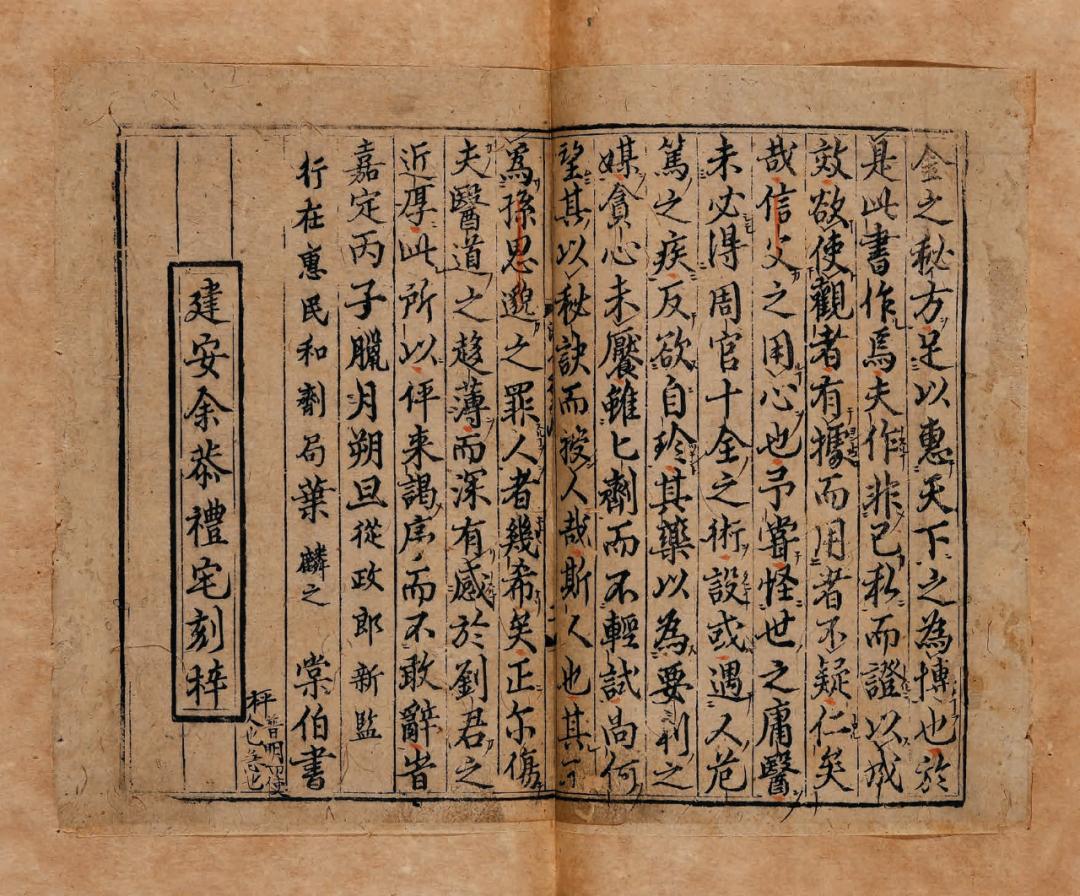 金之秘方足以惠天下之為博也於
是此書作焉夫作非己私而證以成
效欲使觀者有據而用者不疑仁矣
哉信父之用心也予嘗怪世之庸醫
未必得周官十全之術設或遇人危
篤之疾反欲自珍其藥以為要利之
媒貪心未饜雖匕劑而不輕試尚何
望其以秘訣而授人哉斯人也其不
為孫思邈之罪人者幾希矣正尔傷
夫醫道之趍薄而深有感於劉君之
近厚此所以伻来謁序而不敢辭旹
嘉定丙子臘月朔旦從政郎新監
行在惠民和劑局葉麟之 棠伯書
建安余恭禮宅刻梓